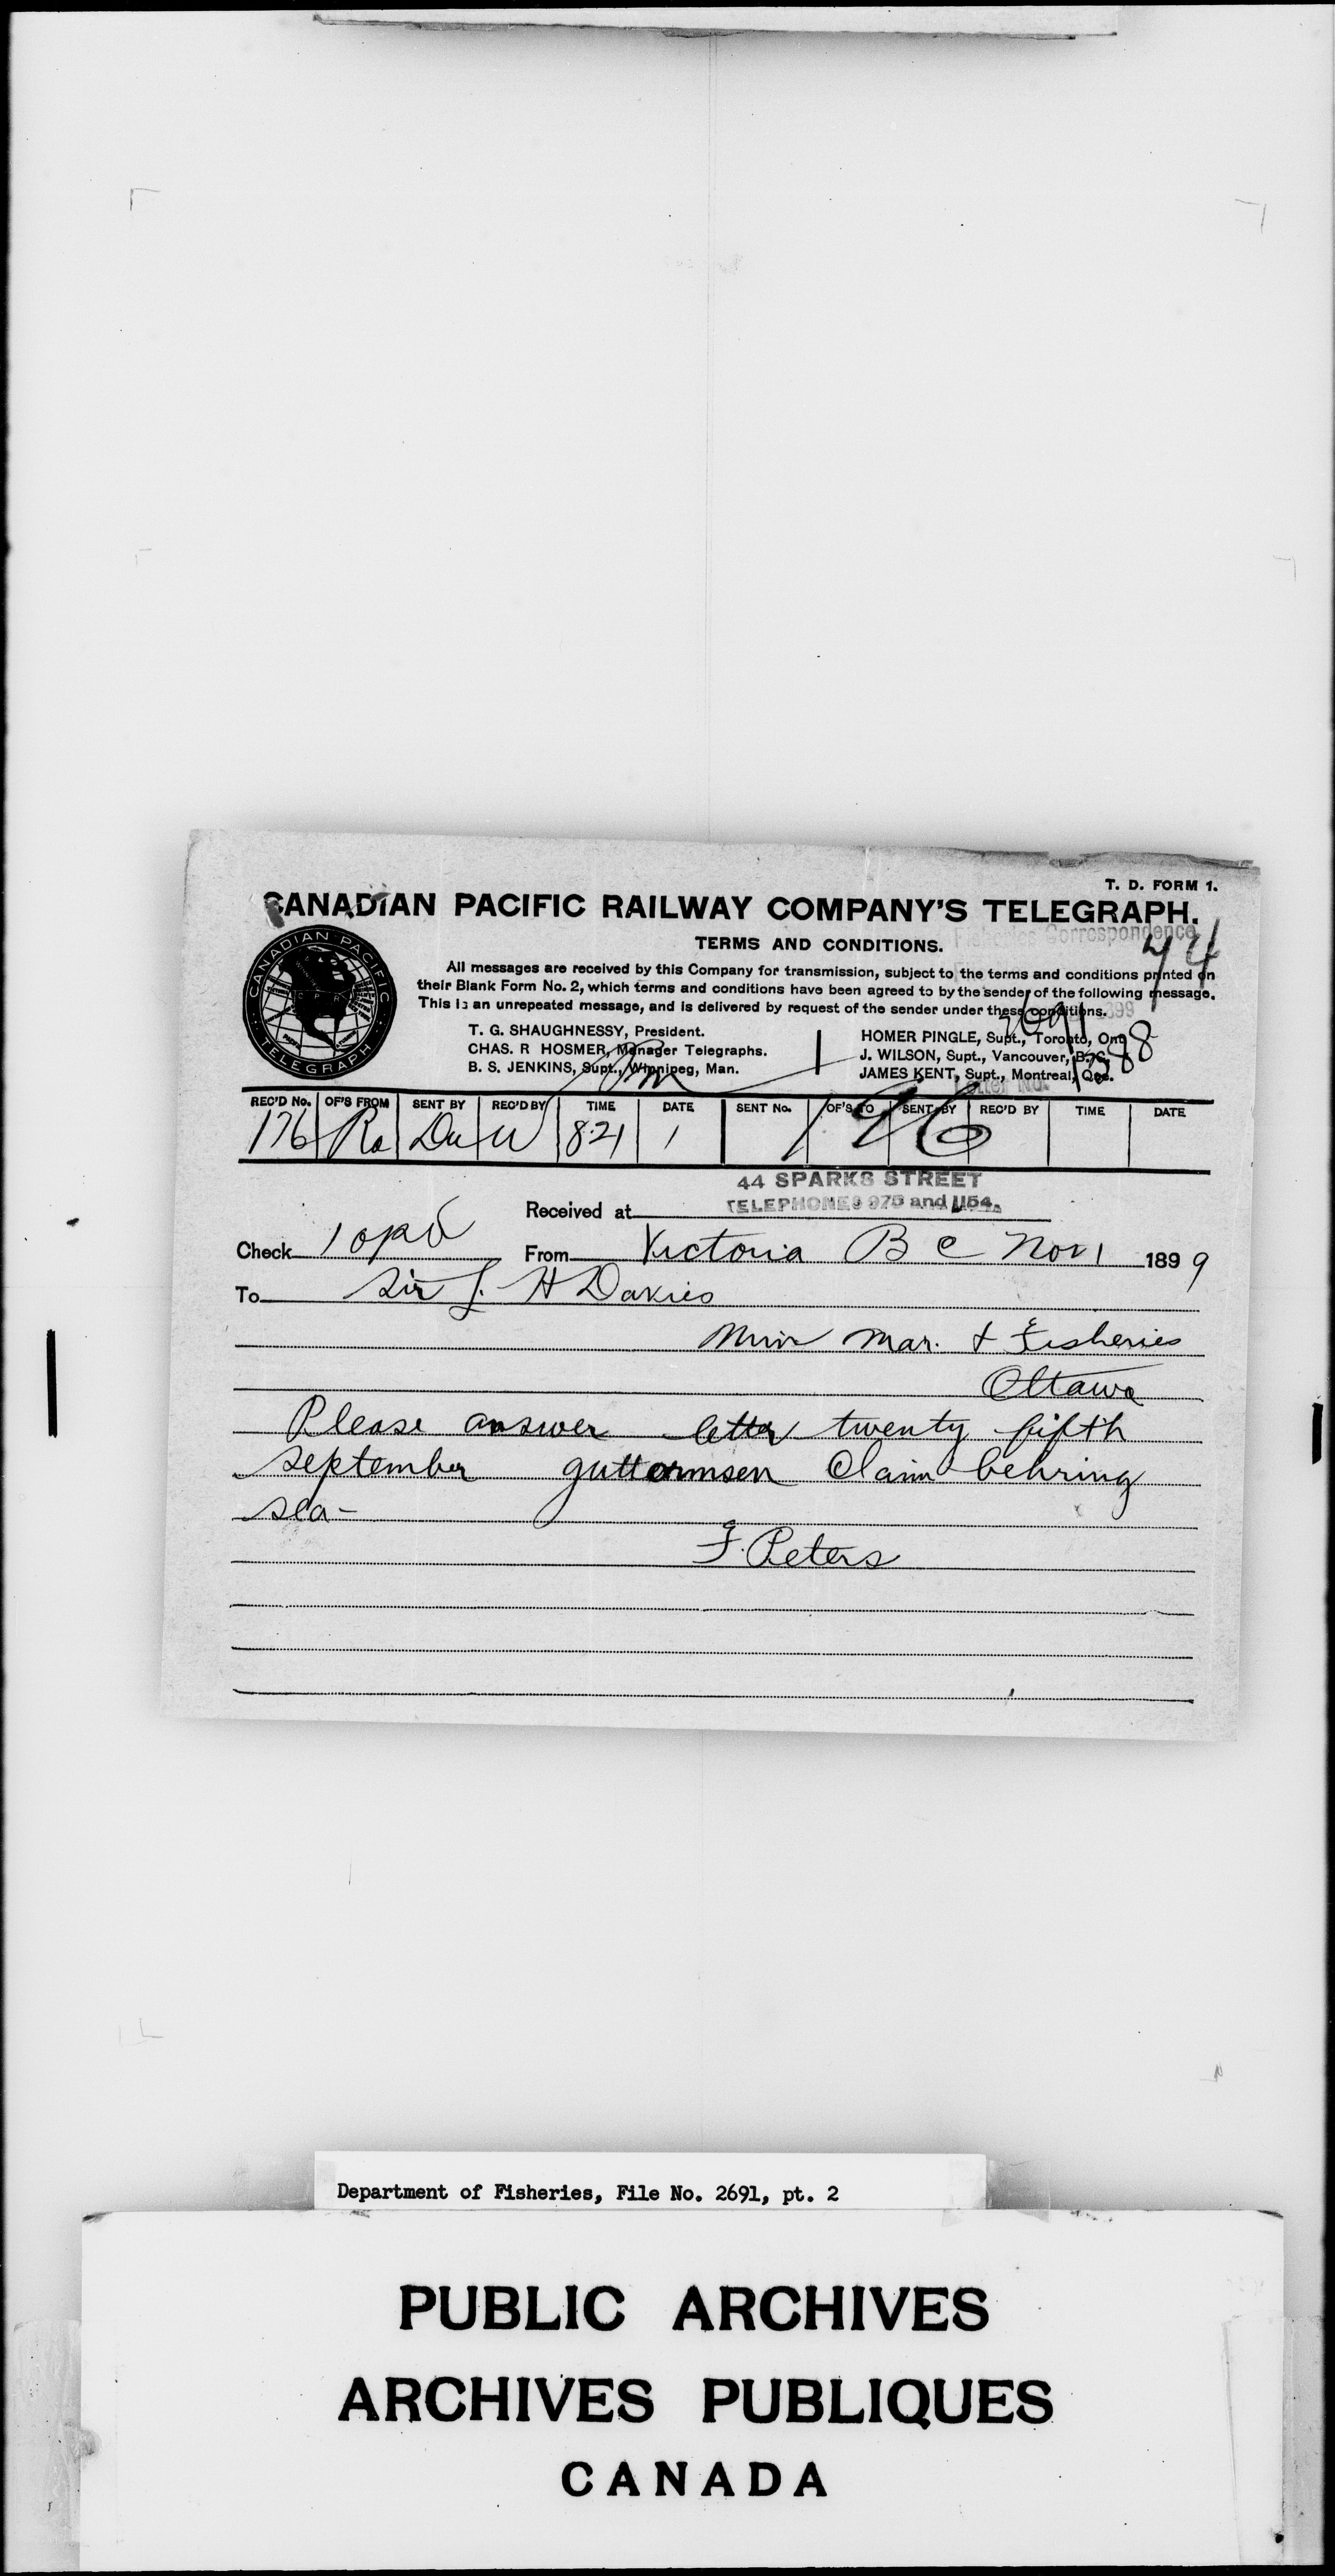 T. D. FORM 1.
CANADIAN PACIFIC RAILWAY COMPANY'S TELEGRAPH.
Fisheries Correspondence
44
TERMS AND CONDITIONS.
All messages are received by this Company for transmission, subject to the terms and conditions printed on
their Blank Form No. 2, which terms and conditions have been agreed to by the sender of the following message.
This is an unrepeated message, and is delivered by request of the sender under these conditions.
CANADIAN PACIFIC
C P R
TELEGRAPH
T. G. SHAUGHNESSY, President.
CHAS. R HOSMER, Manager Telegraphs.
B. S. JENKINS, Supt., Winnipeg, Man.
HOMER PINGLE, Supt., Toronto, Ont.
J. WILSON, Supt., Vancouver, B.C.
JAMES KENT, Supt., Montreal, Que.
2691
1588
REC'D No. OF'S FROM SENT BY REC'D BY TIME DATE SENT No. OF'S TO SENT BY REC'D BY TIME DATE
176 Ra Du W 8.21 1 196
44 SPARKS STREET
TELEPHONES 975 and 1154.
Received at
Check 10pd From Victoria B C Nov 1 1899
To Sir L. H Davies
Min Mar. & Fisheries
Ottawa
Please answer letter twenty fifth
september guttormsen Claim behring
sea-
F. Peters
Department of Fisheries, File No. 2691, pt. 2
PUBLIC ARCHIVES
ARCHIVES PUBLIQUES
CANADA